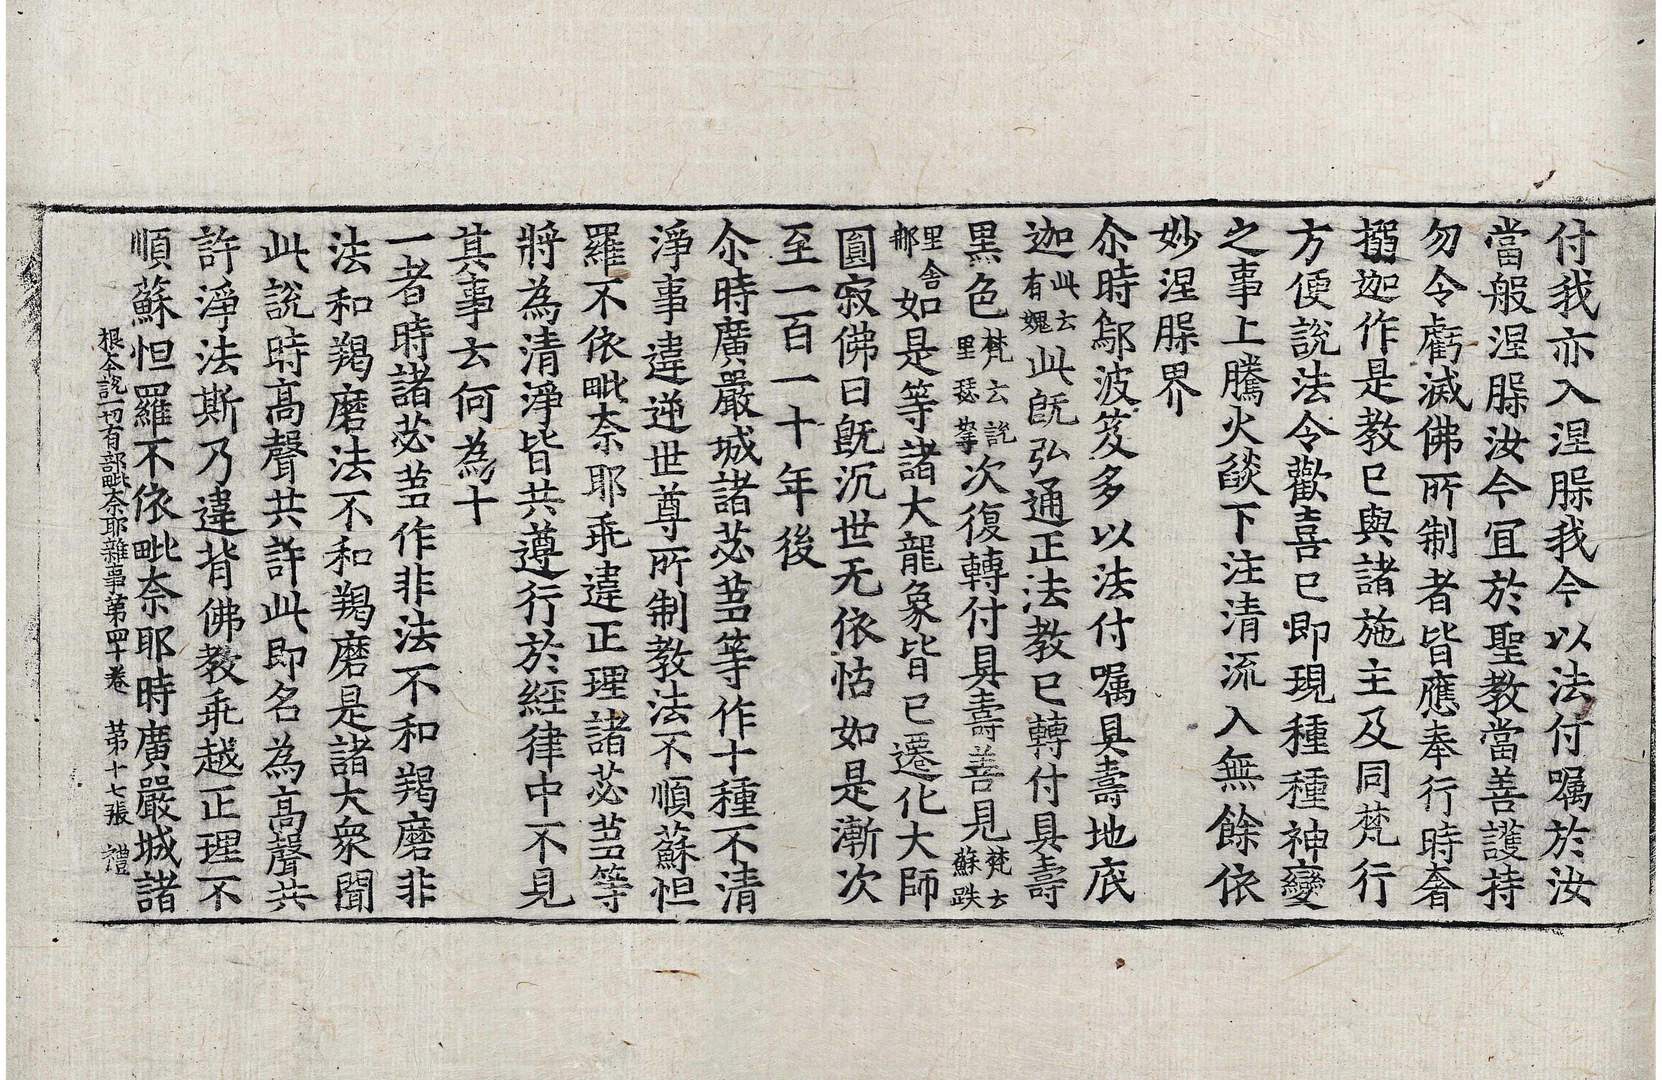 付我亦入涅㒵我今以法付嘱於汝
當般涅㒵汝今宜於聖教當善護持
勿令虧滅佛所制者皆應奉行時奢
搦迦作是教已與諸施主及同梵行
方便說法令歡喜已即現種種神變
之事上騰火燄下注清流入無餘依
妙涅㒵界
尒時鄔波笈多以法付嘱具壽地底
迦此云有媿此旣弘通正法教已轉付具壽
黒色梵云訖里瑟拏次復轉付具壽善見梵云蘇跌
里舍那如是等諸大龍象皆已遷化大師
圓寂佛日旣沉世无依怙如是漸次
至一百一十年後
尒時廣嚴城諸苾芻等作十種不清
淨事違逆世尊所制教法不順蘇怛
羅不依毗奈耶乖違正理諸苾芻等
將為清淨皆共遵行於經律中不見
其事云何為十
一者時諸苾芻作非法不和羯磨非
法和羯磨法不和羯磨是諸大衆聞
此說時高聲共許此即名為高聲共
許淨法斯乃違背佛教乖越正理不
順蘇怛羅不依毗奈耶時廣嚴城諸
根本說一切有部毗奈耶雜事第四十卷 第十七張 禮